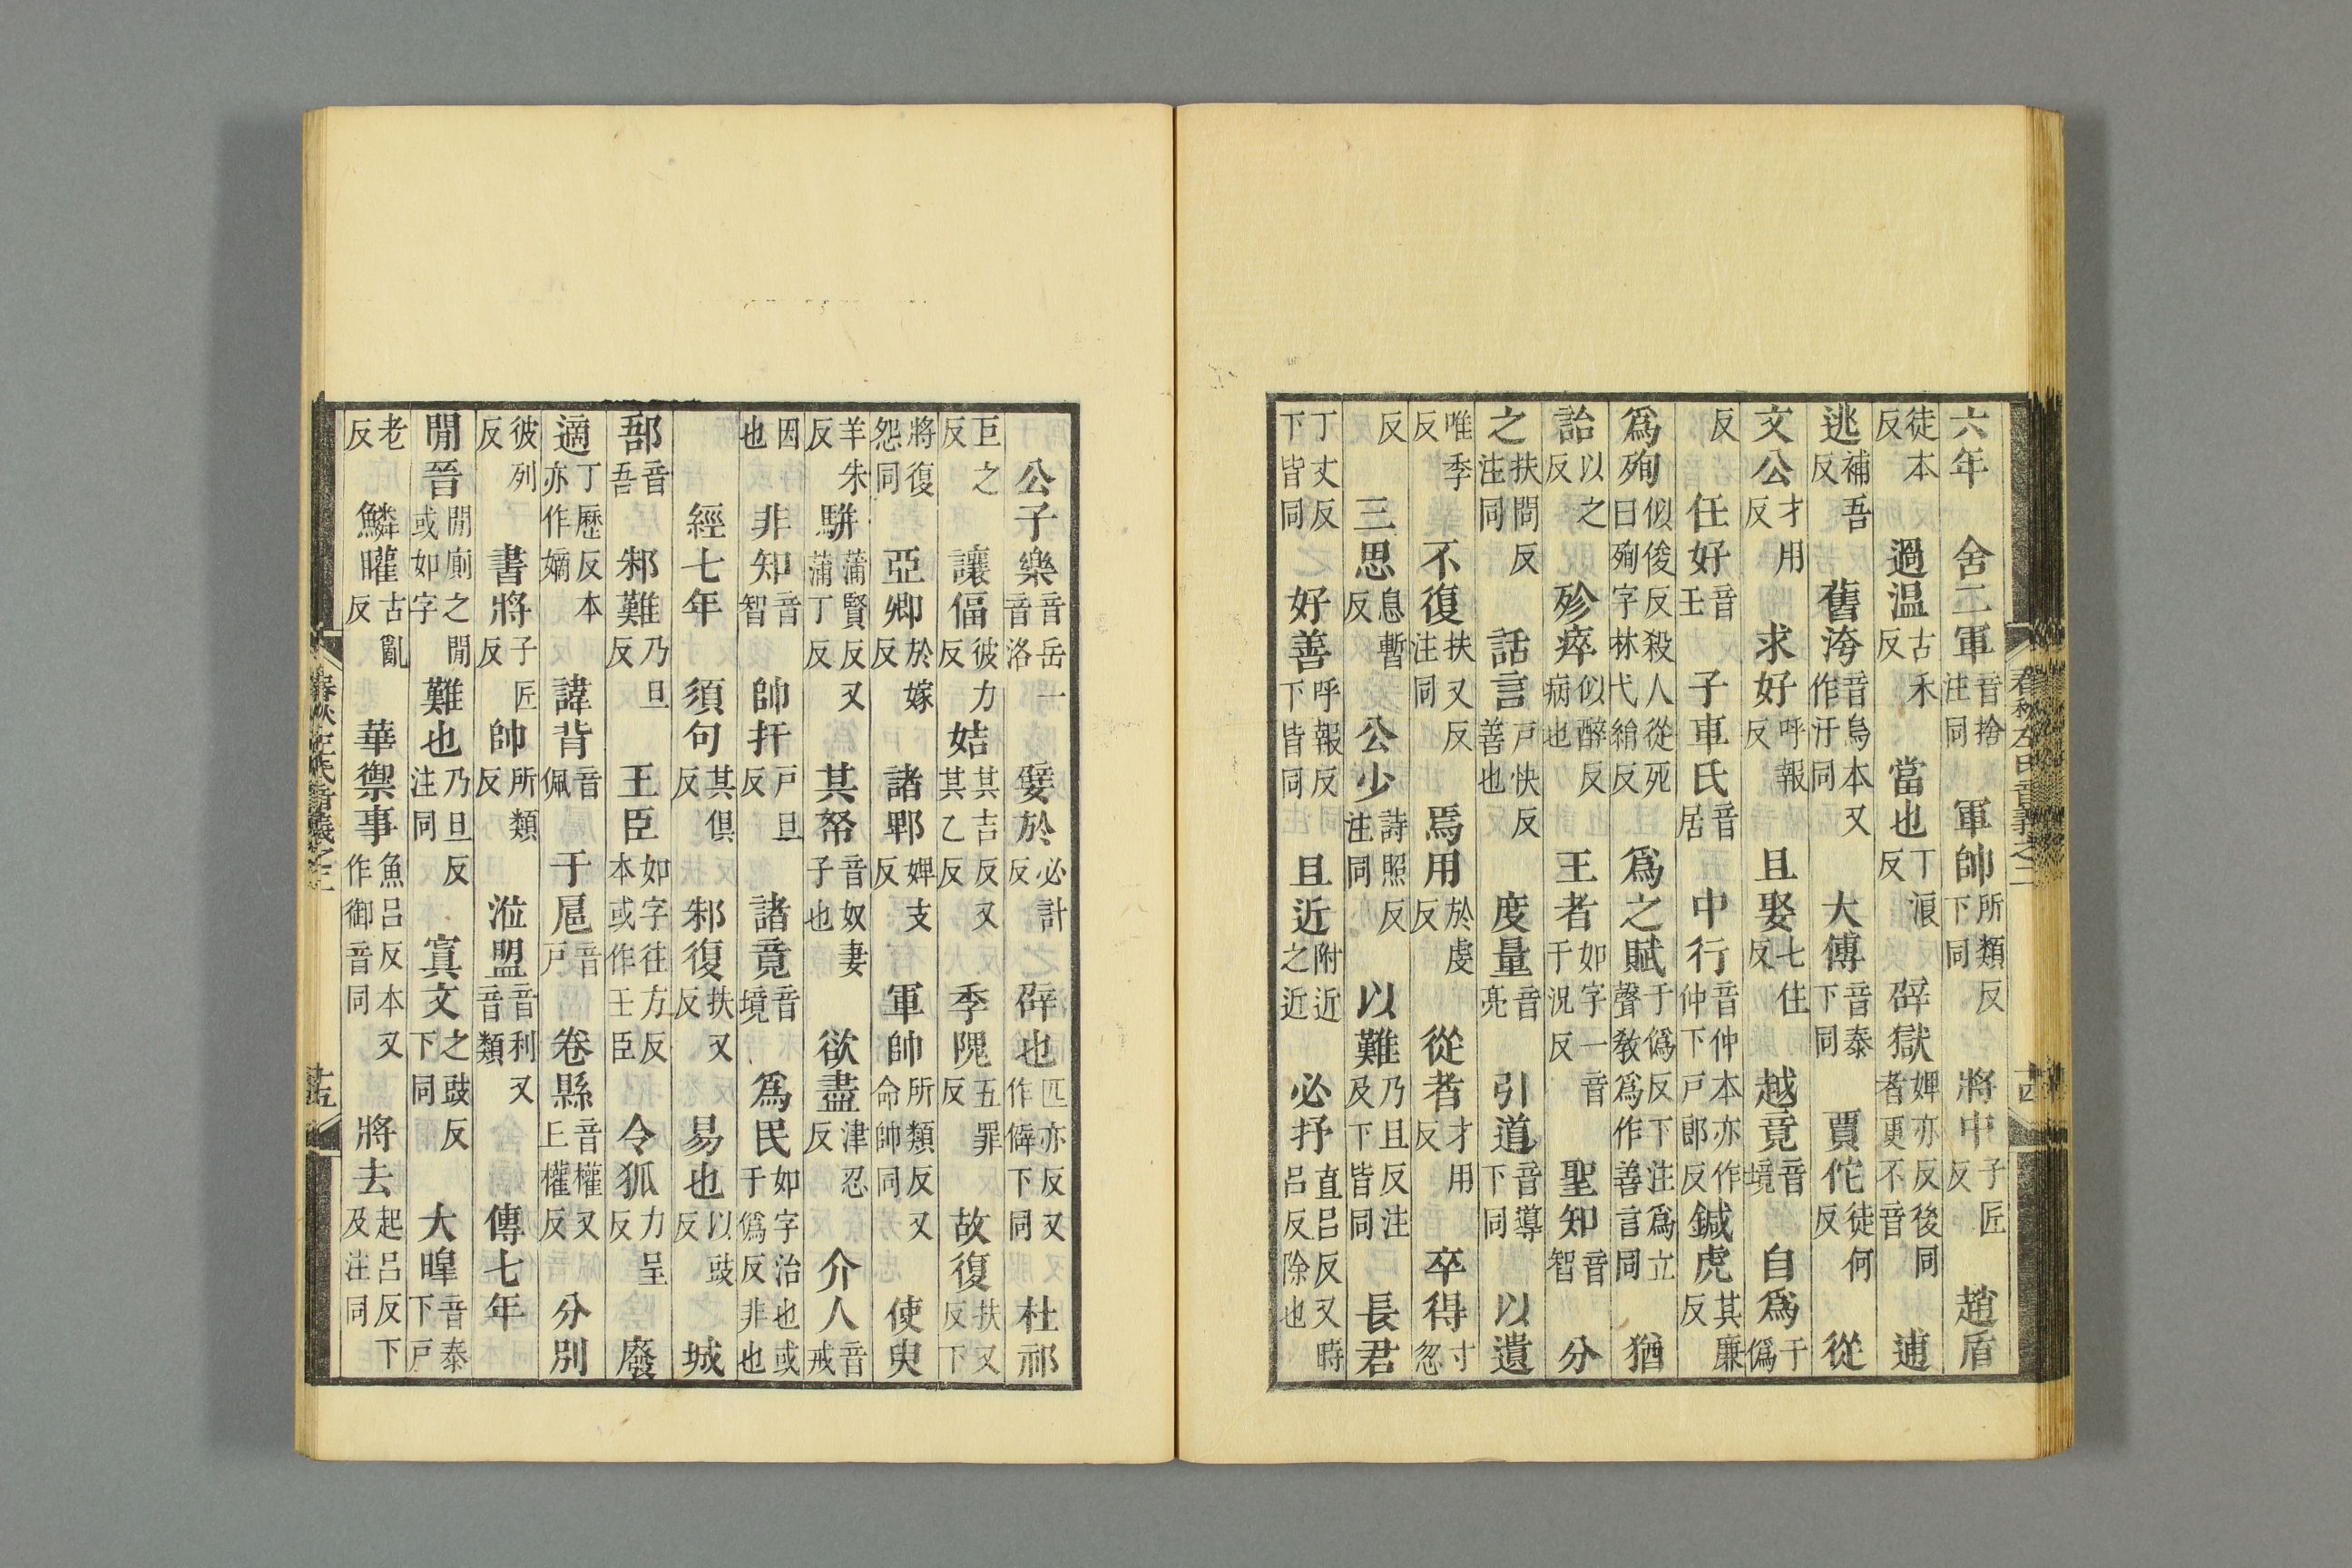 六年　舍二軍音捨注同　軍帥所類反下同　將中子匠反　趙盾
徒本反　過温古禾反　當也丁浪反　辟獄婢亦反後同者更不音　逋
逃補吾反　舊洿音烏本又作汙同　大傅音泰下同　賈佗徒何反　從
文公才用反　求好呼報反　且娶七住反　越竟音境　自爲于僞
反　任好音壬　子車氏音居　中行音仲本亦作仲下戸郎反　鍼虎其廉反
爲殉似俊反殺人從死曰殉字林弋絹反　爲之賦于僞反下注爲立聲教爲作善言同　猶
詒以之反　殄瘁似醉反病也　王者如字一音于況反　聖知音智　分
之扶問反注同　話言戸快反善也　度量音亮　引道音導下同　以遺
唯季反　不復扶又反注同　焉用於虔反　從者才用反　卒得寸忽
反　三思息暫反　公少詩照反注同　以難乃且反注及下皆同　長君
丁丈反下皆同　好善呼報反下皆同　且近附近之近　必抒直呂反又時呂反除也
春秋左氏音義之二　十四
公子樂音岳一音洛　嬖於必計反　辟也匹亦反又作僻下同　杜祁
巨之反　讓偪彼力反　姞其吉反又其乙反　季隗五罪反　故復扶又反下
將復怨同　亞卿於嫁反　諸郫婢支反　軍帥所類反又命帥同　使臾
羊朱反　駢蒲賢反又蒲丁反　其帑音奴妻子也　欲盡津忍反　介人音戒
因也　非知音智　帥扞戸旦反　諸竟音境　爲民如字治也或于僞反非也
經七年　須句其俱反　邾復扶又反　易也以豉反　城
郚音吾　邾難乃旦反　王臣如字往方反本或作壬臣　令狐力呈反　廢
適丁歷反本亦作嫡　諱背音佩　于扈音戸　卷縣音權又丄權反　分別
彼列反　書將子匠反　帥所類反　涖盟音利又音類　傳七年
閒晉閒廁之閒或如字　難也乃旦反注同　寘文之豉反下同　大暤音泰下戸
老反　鱗矔古亂反　華禦事魚呂反本又作御音同　將去起呂反下及注同
春秋左氏音義之二　十五